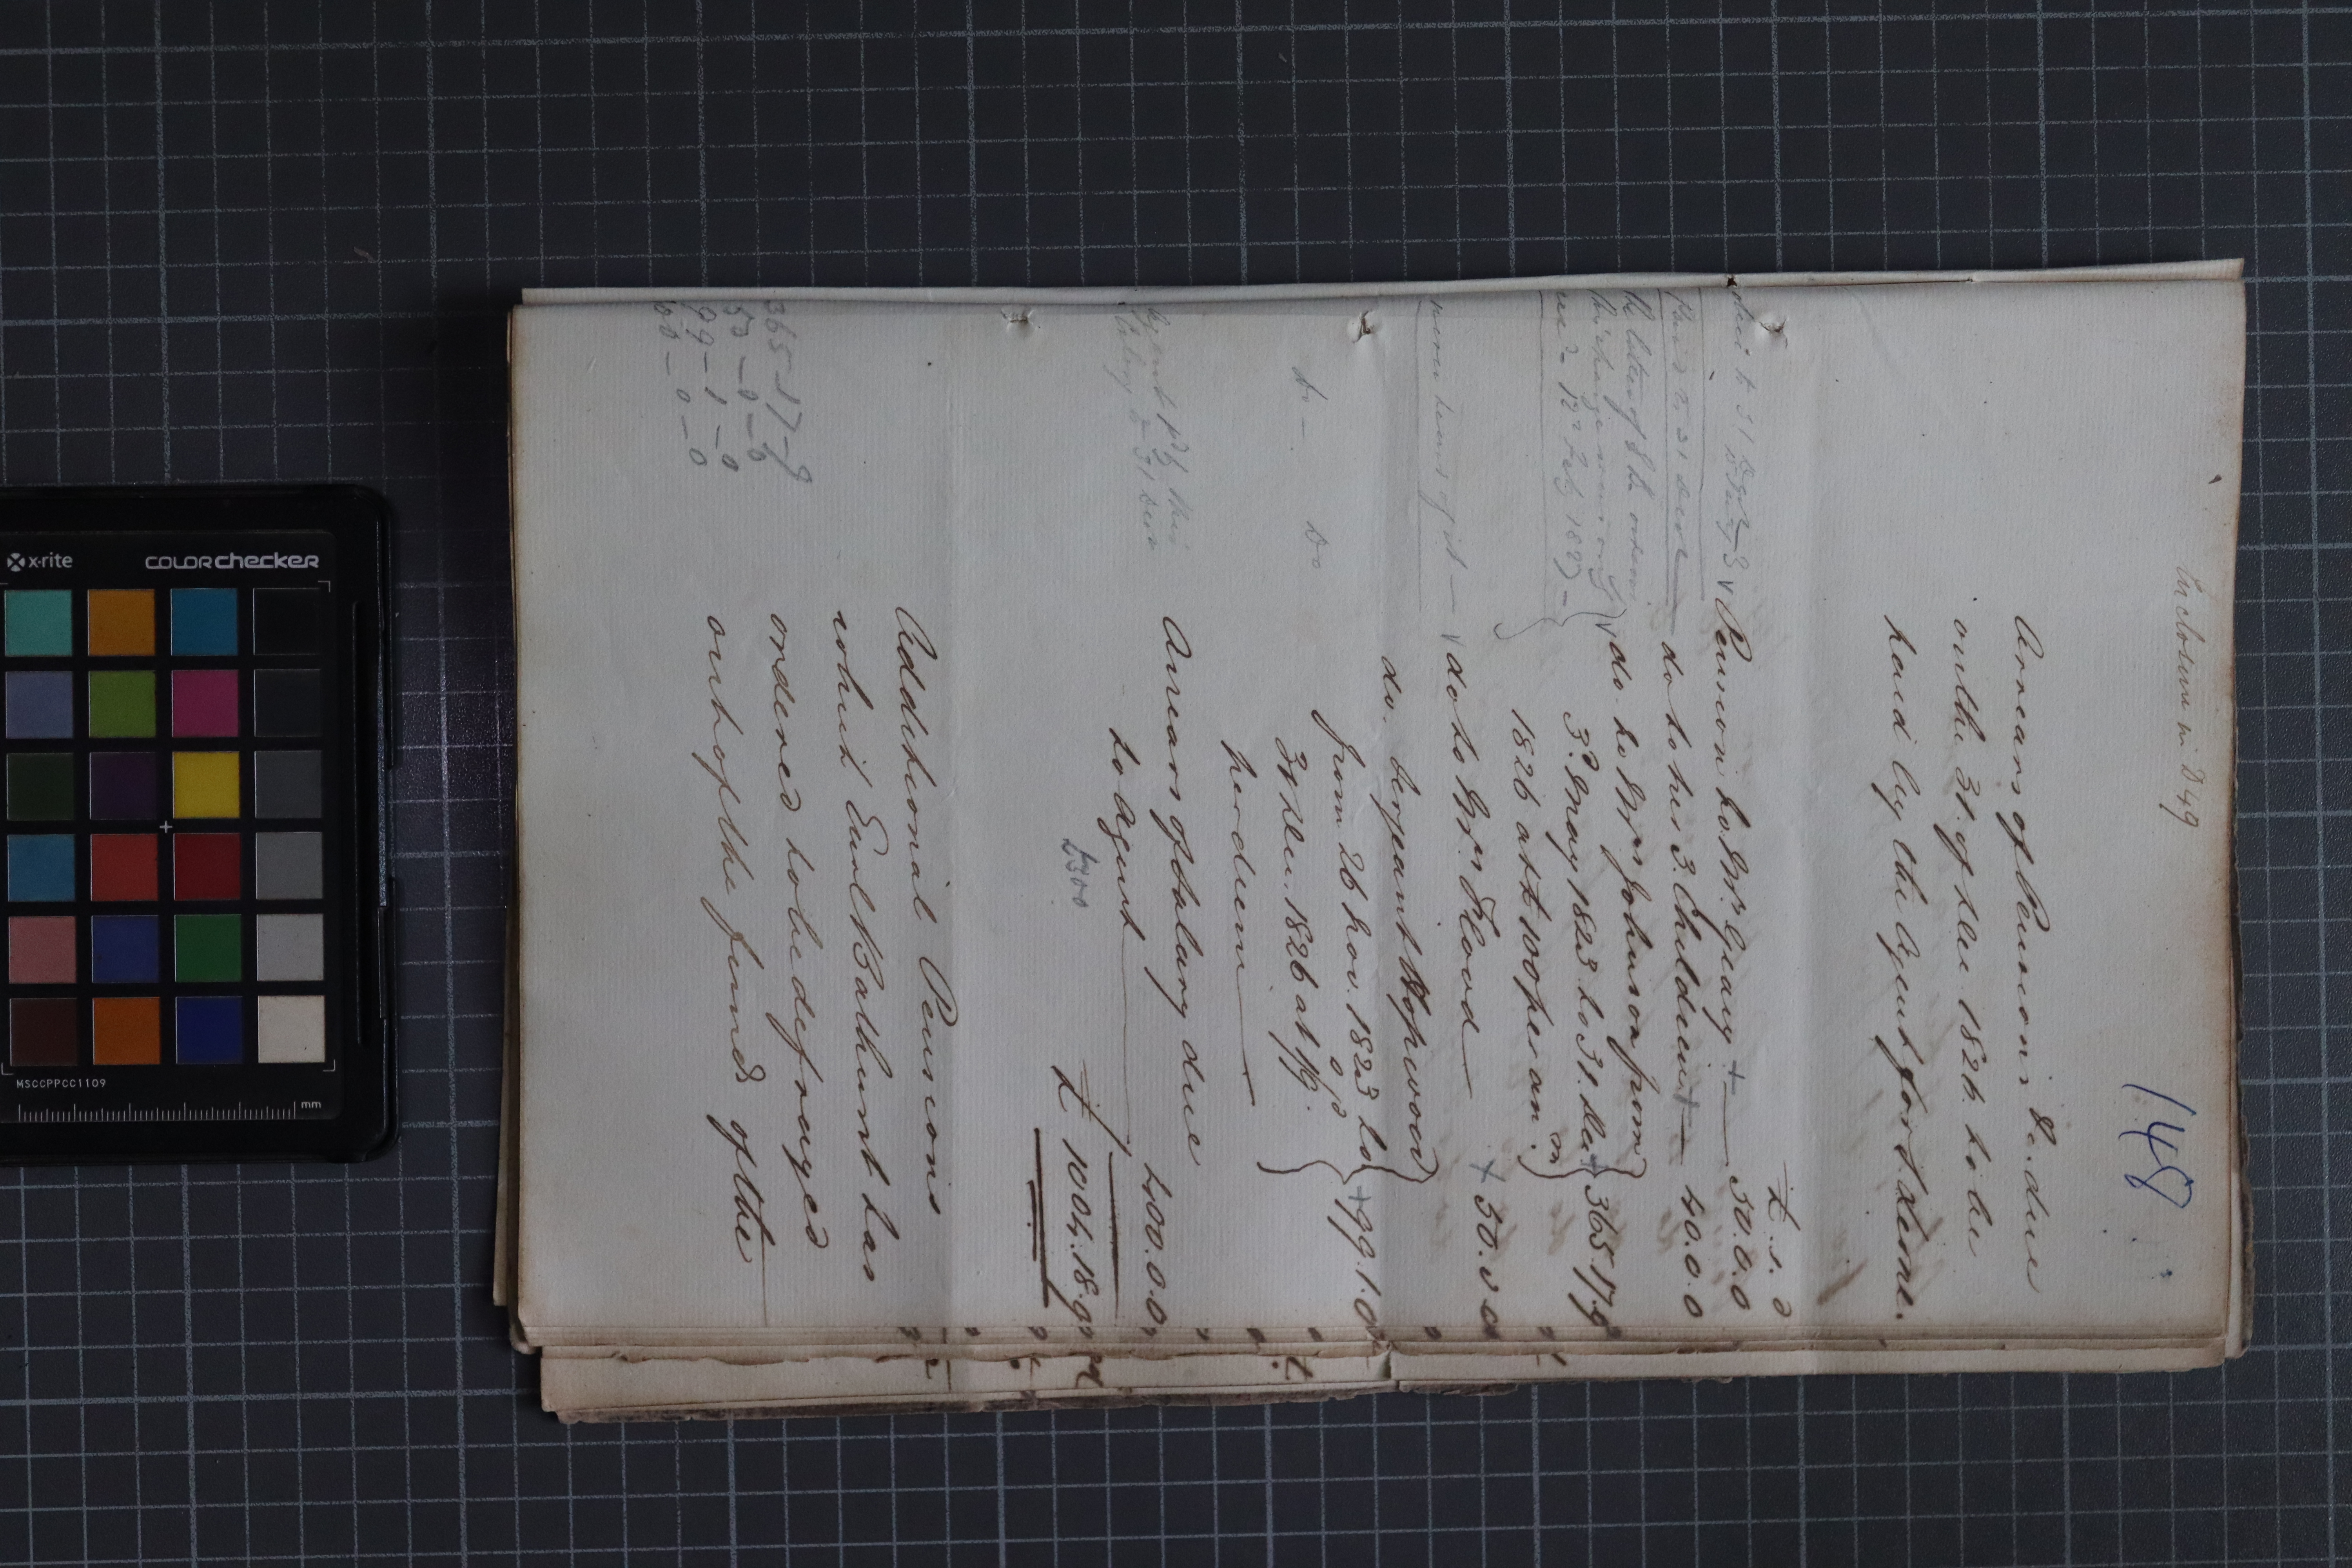 Enclosure in D49
148
Arrears of Pensions &c. due
on the 31. of Dec. 1826. to be
paid by the Agent for S. Leone.
£. s. d
due to 31 Decr
Pension to Mrs. Geary + 50.0.0
do to her 3. Children + 40.0.0
do. to Mrs Johnson from
3d. May 1823 to 31. Dec + 365.17.9
1826 at £100 per an:m
never heard of it -
do to Mrs. Flood + 50.0.0
do. Serjeant Hopewood
from 26 Nov. 1823 to + 99.1.0
31 Dec. 1826 at
per diem
Do - Do
Arrears of Salary due
to Agent 400.0.0
£300
£ 1004.18.9
Additional Pensions
which Earl Bathurst has
ordered to be defrayed
out of the funds of the
365-17-9
50-0-0
99-1-0
x-rite
colorchecker
MSCCPPCC1109
mm